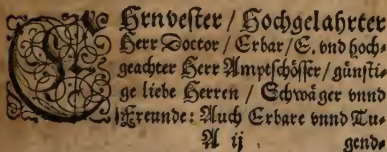 EHrnvester / Hochgelahrter
Herr Doctor / Erbar / E. vnd hoch-
geachter Herr Amptschösser / günsti-
ge liebe Herren / Schwäger vnnd
Freunde: Auch Erbare vnnd Tu-
A ij gend-